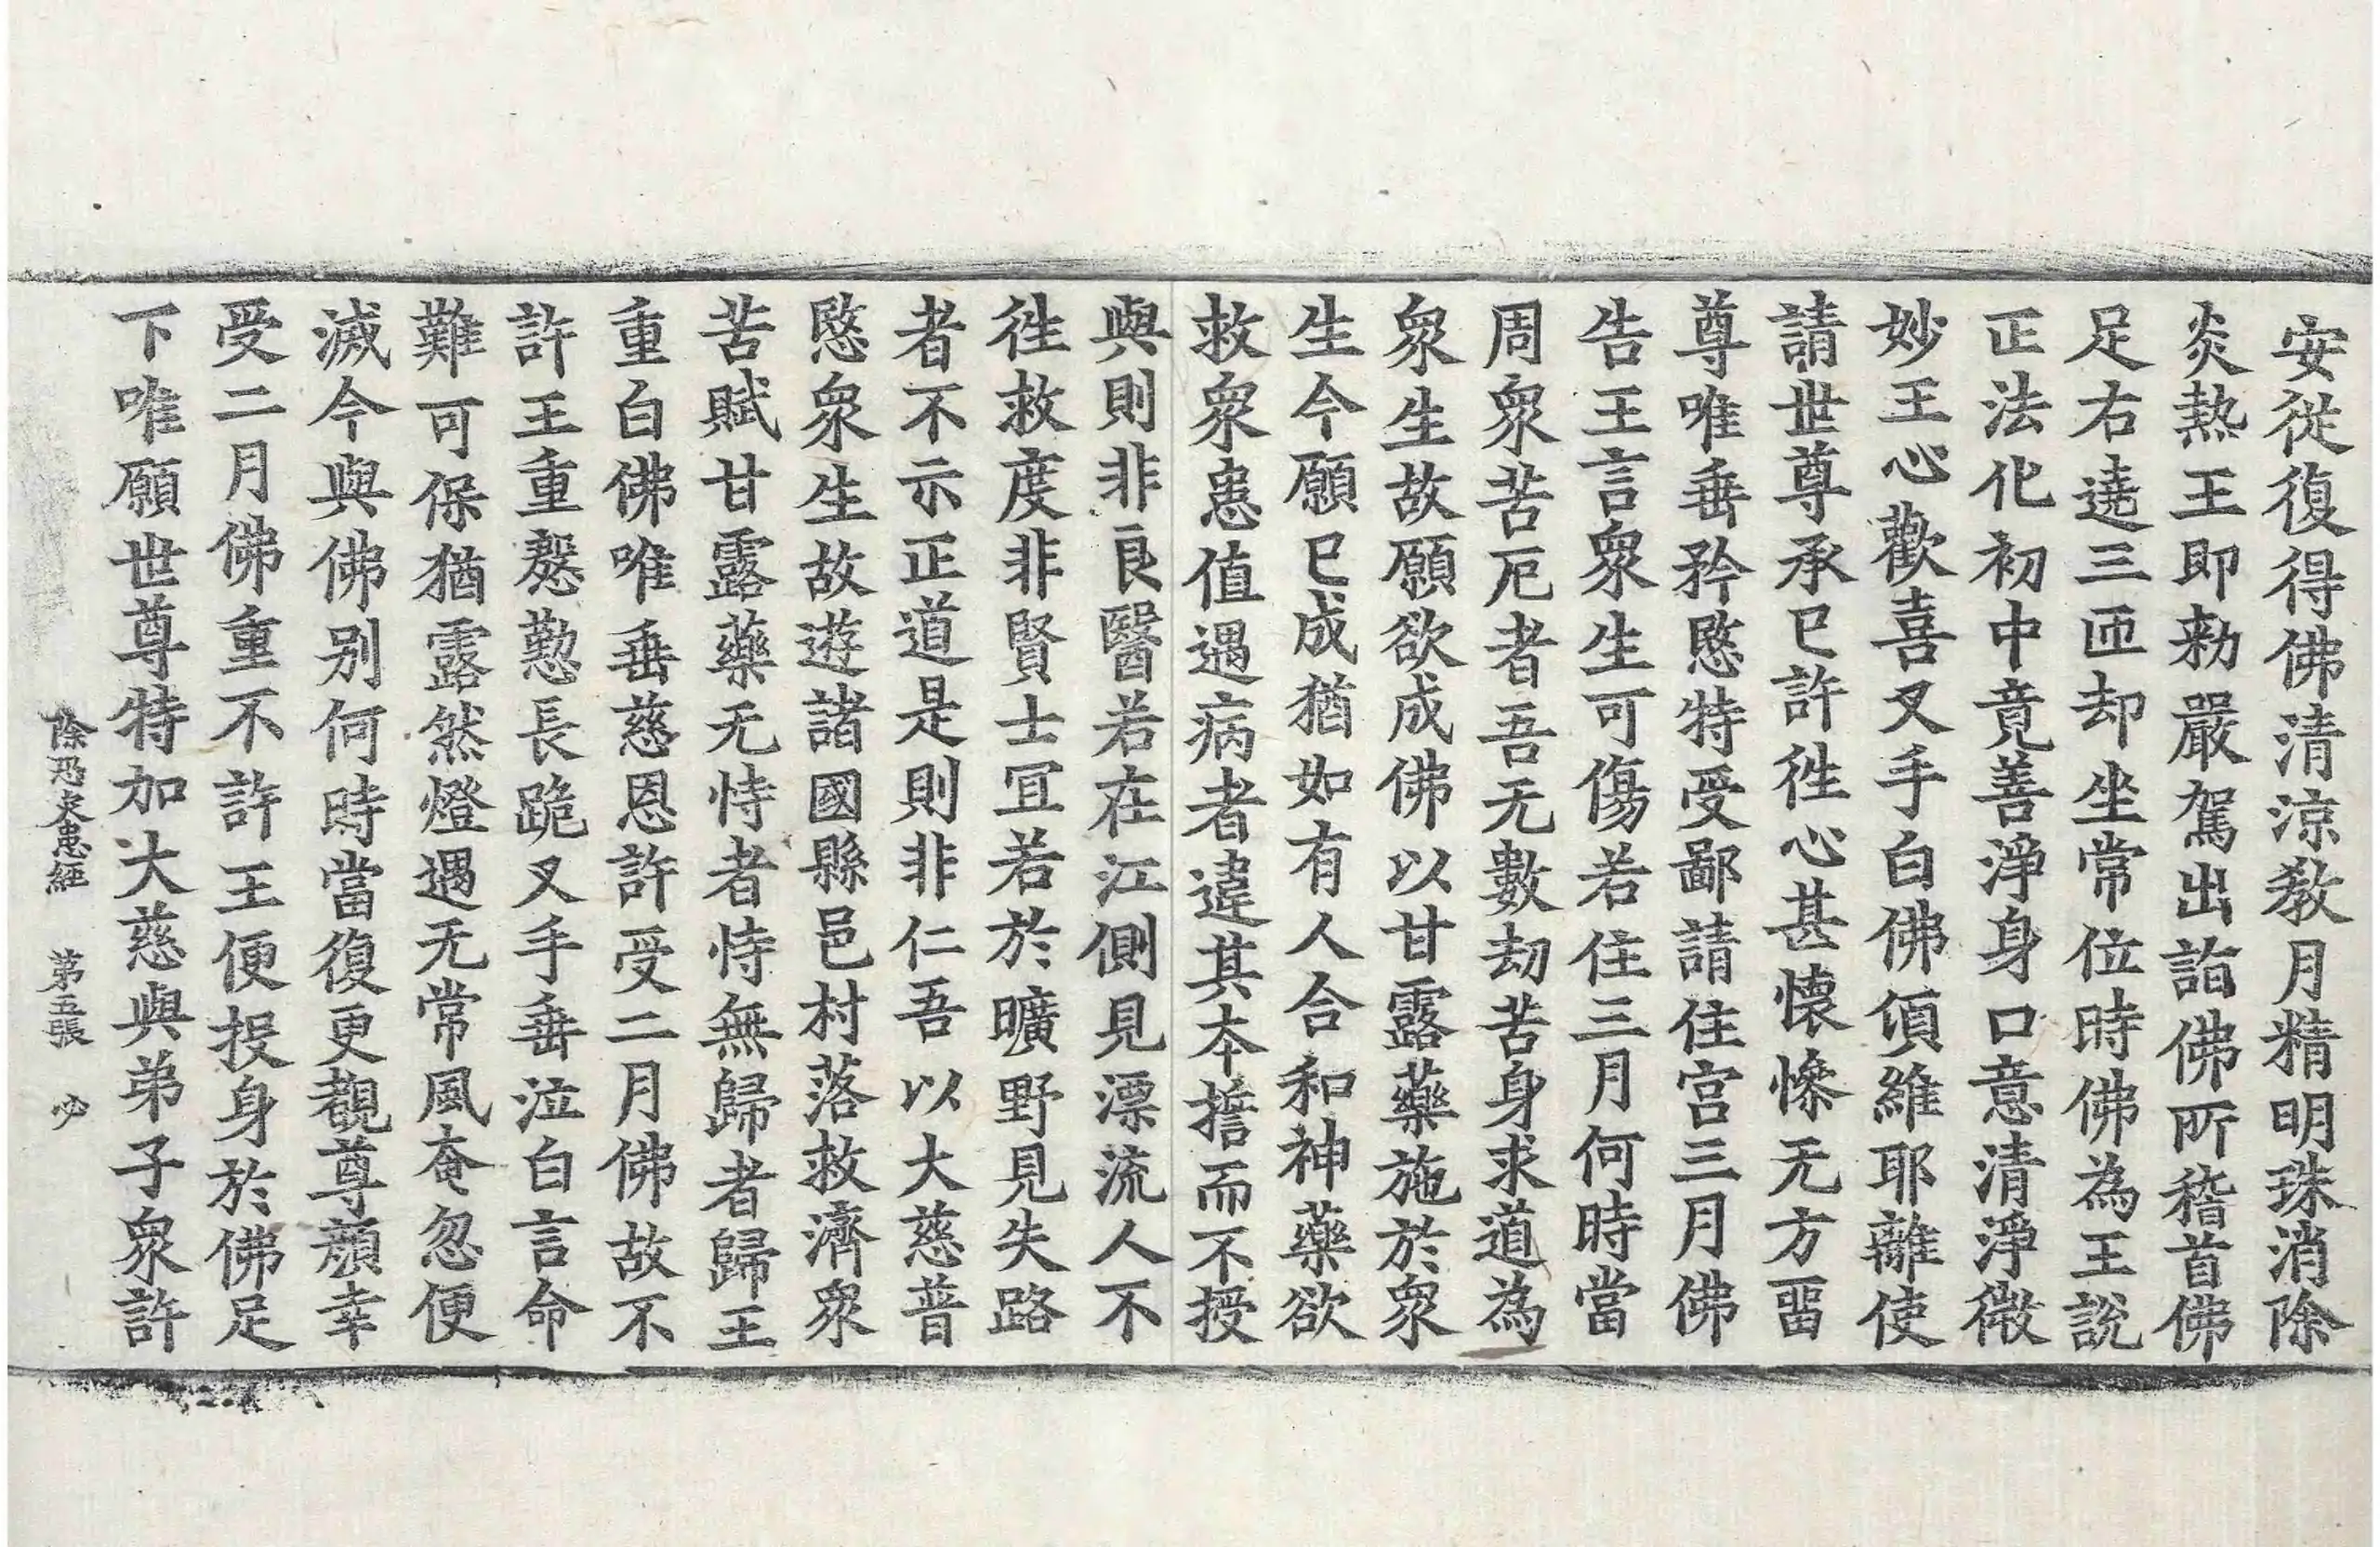 安從復得佛清涼教月精明珠消除
炎熱王即勑嚴駕出詣佛所稽首佛
足右遶三匝却坐常位時佛為王說
正法化初中竟善淨身口意清淨微
妙王心歡喜叉手白佛須維耶離使
請世尊承已許徃心甚懷慘无方畱
尊唯垂矜愍特受鄙請住宫三月佛
告王言衆生可傷若住三月何時當
周衆苦厄者吾无數劫苦身求道為
衆生故願欲成佛以甘露藥施於衆
生今願已成猶如有人合和神藥欲
救衆患值遇病者違其本誓而不授
與則非良醫若在江側見漂流人不
徃救度非賢士冝若於曠野見失路
者不示正道是則非仁吾以大慈普
愍衆生故遊諸國縣邑村落救濟衆
苦賦甘露藥无恃者恃無歸者歸王
重白佛唯垂慈恩許受二月佛故不
許王重慇懃長跪叉手垂泣白言命
難可保猶露然燈遇无常風奄忽便
滅今與佛别何時當復更覩尊顔幸
受二月佛重不許王便投身於佛足
下唯願世尊特加大慈與弟子衆許
除恐灾患經 苐五張